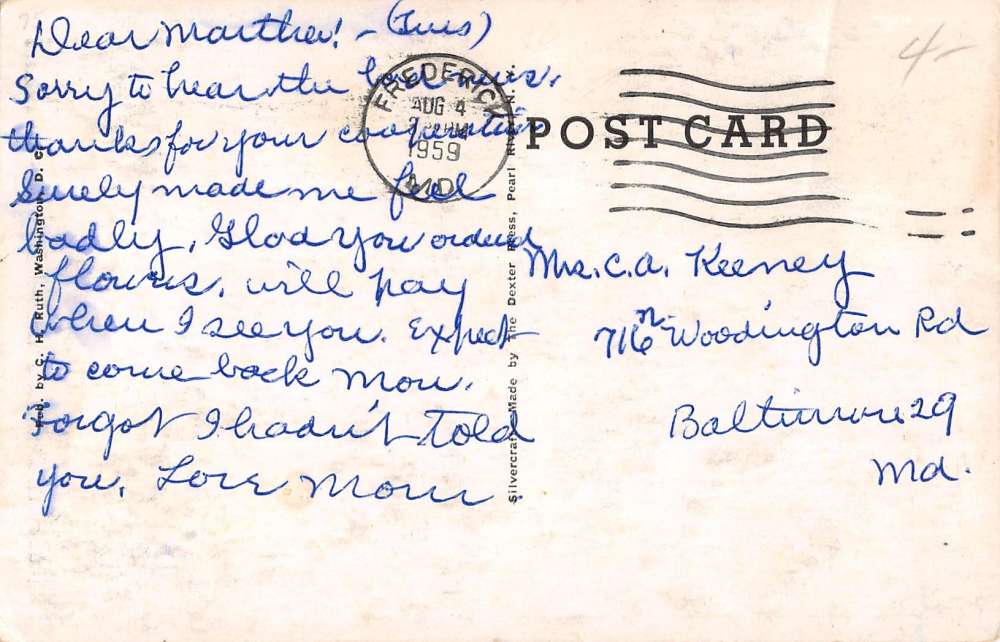 Dear Martha! - (Tues)
Sorry to hear the bad news.
thanks for your cooperation
Surely made me feel
badly. Glad you ordered
flowers. will pay
when I see you. Expect
to come back Mon.
Forgot I hadn't told
you. Love Mom.
FREDERICK
AUG 4
1959
MD.
POST CARD
4-
Mrs. C. A. Keeney
716 N. Woodington Rd
Baltimore 29
Md.
Pub. by C. H. Ruth, Washington, D. C.
Silvercraft Made by The Dexter Press, Pearl River, N. Y.